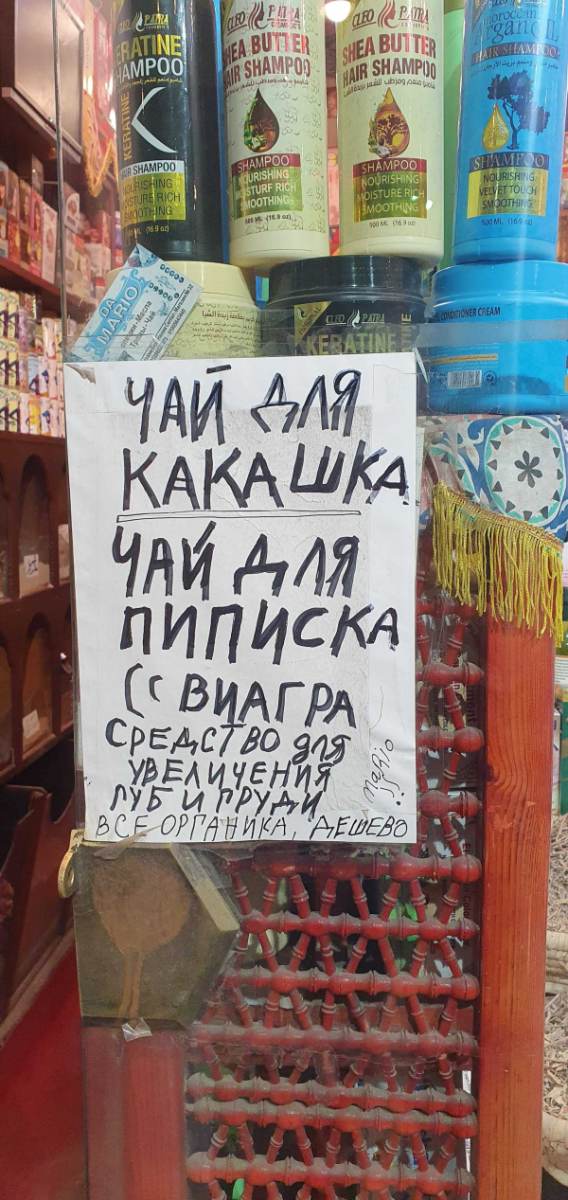 CLEO PATRA
KERATINE
SHAMPOO
KERATINE
HAIR SHAMPOO
NOURISHING
MOISTURE RICH
SMOOTHING
500 ML (16.9 oz)
CLEO PATRA
SHEA BUTTER
HAIR SHAMPOO
SHAMPOO
NOURISHING
MOISTURE RICH
SMOOTHING
500 ML (16.9 oz)
CLEO PATRA
SHEA BUTTER
HAIR SHAMPOO
SHAMPOO
NOURISHING
MOISTURE RICH
SMOOTHING
500 ML (16.9 oz)
moroccan
Argan OIL
HAIR SHAMPOO
SHAMPOO
NOURISHING
VELVET TOUCH
SMOOTHING
500 ML (16.9 oz)
DA
MARIO
CLEO PATRA
KERATINE
CONDITIONER CREAM
ЧАЙ ДЛЯ
КАКАШКА
ЧАЙ ДЛЯ
ПИПИСКА
(( ВИАГРА
СРЕДСТВО для
УВЕЛИЧЕНИЯ
ГУБ И ГРУДИ
ВСЕ ОРГАНИКА, ДЕШЕВО